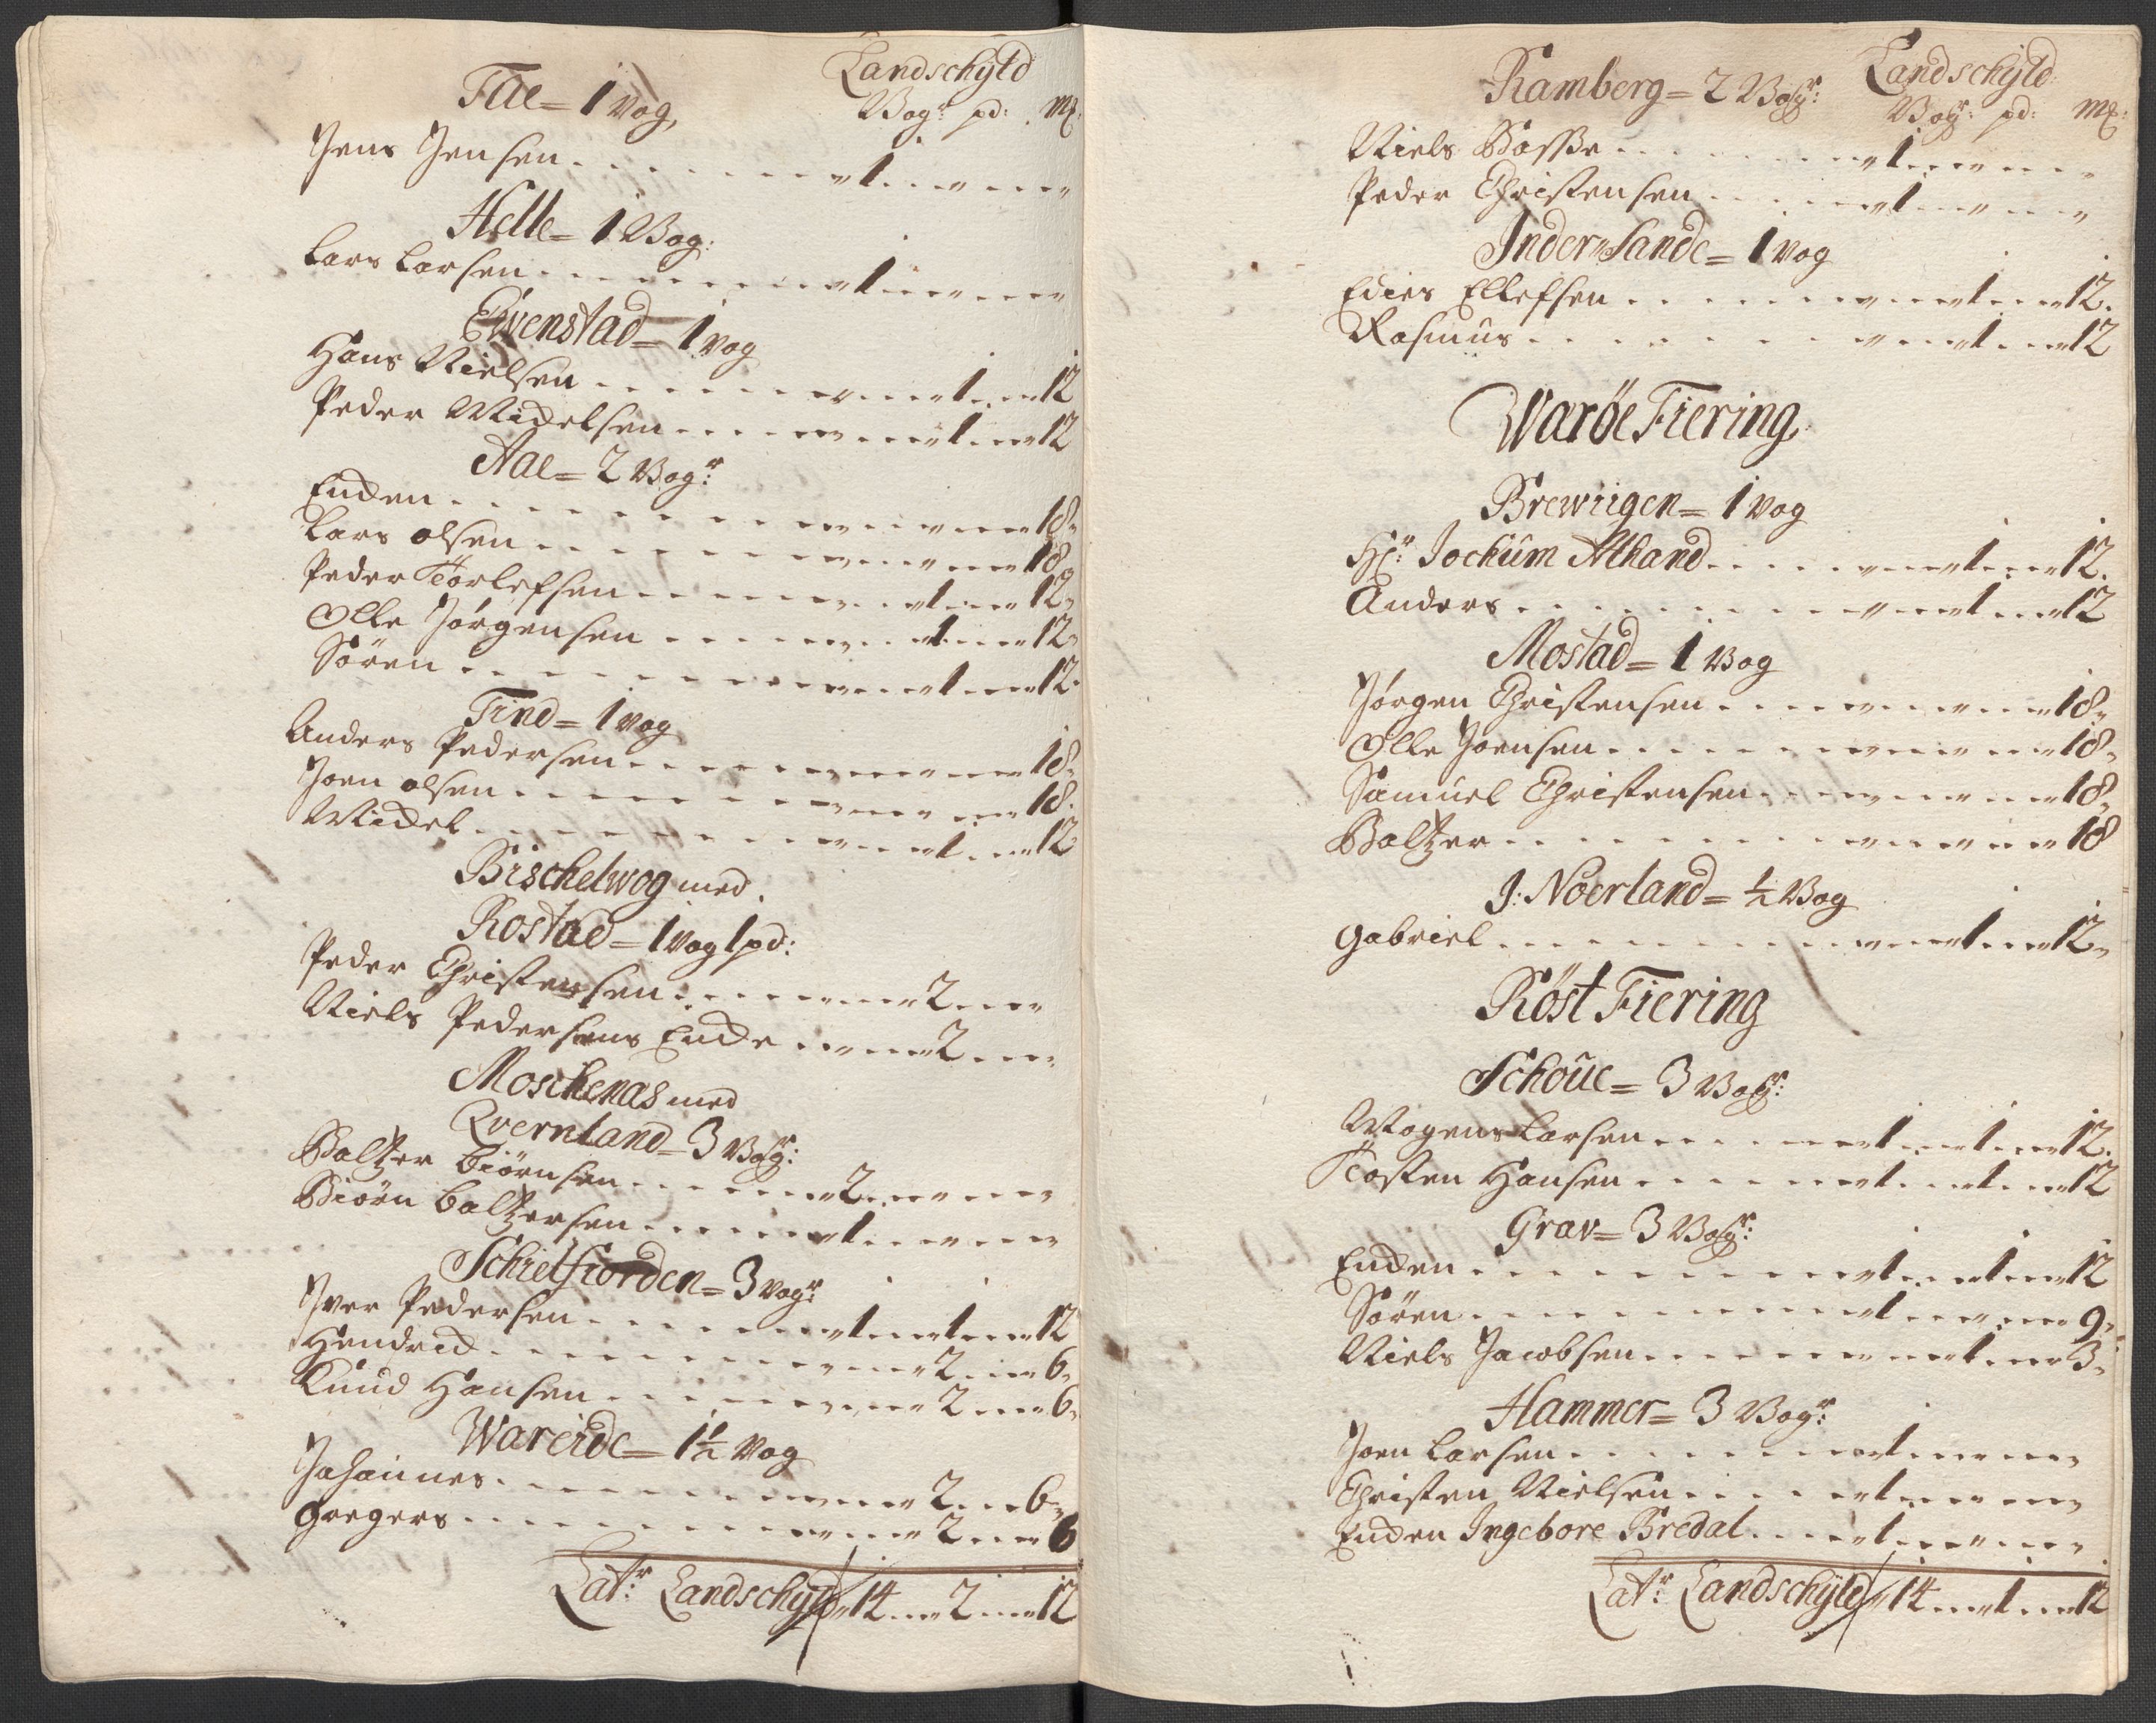 Landschÿld
Tde = 1 Vog,
Vog:r pd: Mk:
Jens Jensen . . . . . . 1 . . . .
Helle = 1 Vog:
Lars Larsen . . . . . . 1 . . . .
Evenstad = 1 Vog
Hans Nielsen . . . . . . 1 . . . 12
Peder Michelsen . . . . . . 1 . . . 12
Aae = 2 Vog:r
Enchen . . . . . . 18,
Lars olsen . . . . . . 18,
Peder Torlefsen . . . . . . 1 . . . 12,
Olle Jørgensen . . . . . . 1 . . . 12,
Sören . . . . . . 1 . . . 12.
Tind = 1 Vog
Anders Pedersen . . . . . . 18,
Joen olsen . . . . . . 18.
Michel . . . . . . 1 . . . 12
Bischelwog med
Rostad = 1 Vog 1 pd:
Peder Christensen . . . . . . 2 . . .
Niels Pedersens Enche . . . . . . 2 . . .
Moschenas med
Qvernland = 3 Vog:r
Baltzer Biörnsen . . . . . . 2 . . . .
Biörn Baltzersen . . . . . . 1 . . . .
Schielfiorden = 3 Vog:r
Iver Pedersen . . . . . . 1 . . . 1 . . . 12
Hendrich . . . . . . 2 . . . 6,
Knud Hansen . . . . . . 2 . . . 6,
Wareide = 1½ Vog
Johannes . . . . . . 2 . . . 6,
Gregers . . . . . . 2 . . . 6
Lat:r Landschÿld 14 . . . 2 . . . 12
Landschÿld
Ramberg = 2 Vog:r
Vog:r pd: Mk:
Niels Basse . . . . . . 1 . . . .
Peder Christensen . . . . . . 1 . . . .
Inder Sande = 1 Vog
Edies Ellefsen . . . . . . 1 . . . 12.
Rasmus . . . . . . 1 . . . 12
Warøe Fiering
Brewiigen = 1 Vog
Hr: Jochum Alhand . . . . . . 1 . . . 12.
Anders . . . . . . 1 . . . 12
Mostad = 1 Vog
Jørgen Christensen . . . . . . 18,
Olle Joensen . . . . . . 18,
Samuel Christensen . . . . . . 18,
Baltzer . . . . . . 18
J: Noerland = ½ Vog
Gabriel . . . . . . 1 . . . 12,
Røst Fiering
Schoue = 3 Vog:r
Mogens Larsen . . . . . . 1 . . . 1 . . . 12.
Tosten Hansen . . . . . . 1 . . . 1 . . . 12
Grav = 3 Vog:r
Enchen . . . . . . 1 . . . 1 . . . 12
Sören . . . . . . 1 . . . . 9,
Niels Jacobsen . . . . . . 1 . . . 3,
Hammer = 3 Vog:r
Joen Larsen . . . . . . 1 . . . .
Christen Nielsen . . . . . . 1 . . . .
Enchen Ingebore Bredal . . . . 1 . . . .
Lat:r Landschÿld 14 . . . 1 . . . 12